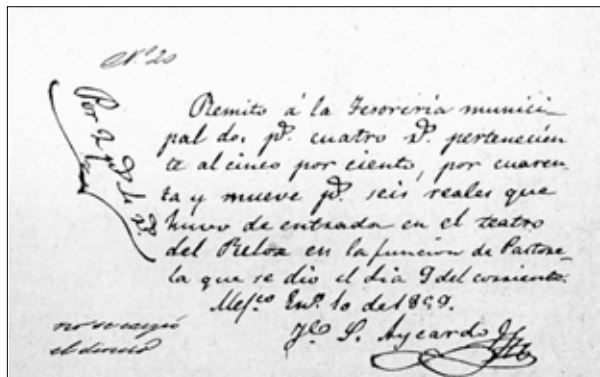 Nº 20
Por 2 ps. 4 rs.
Remito á la Tesoreria munici-
pal dos ps. cuatro rs. pertenecien
te al cinco por ciento, por cuaren-
ta y nueve ps. seis reales que
huvo de entrada en el teatro
del Relox en la funcion de Pastore-
la que se dio el dia 9 del corriente.
Mejco. Eno. 10 de 1859.
S. Aycardo
no se
el dinero